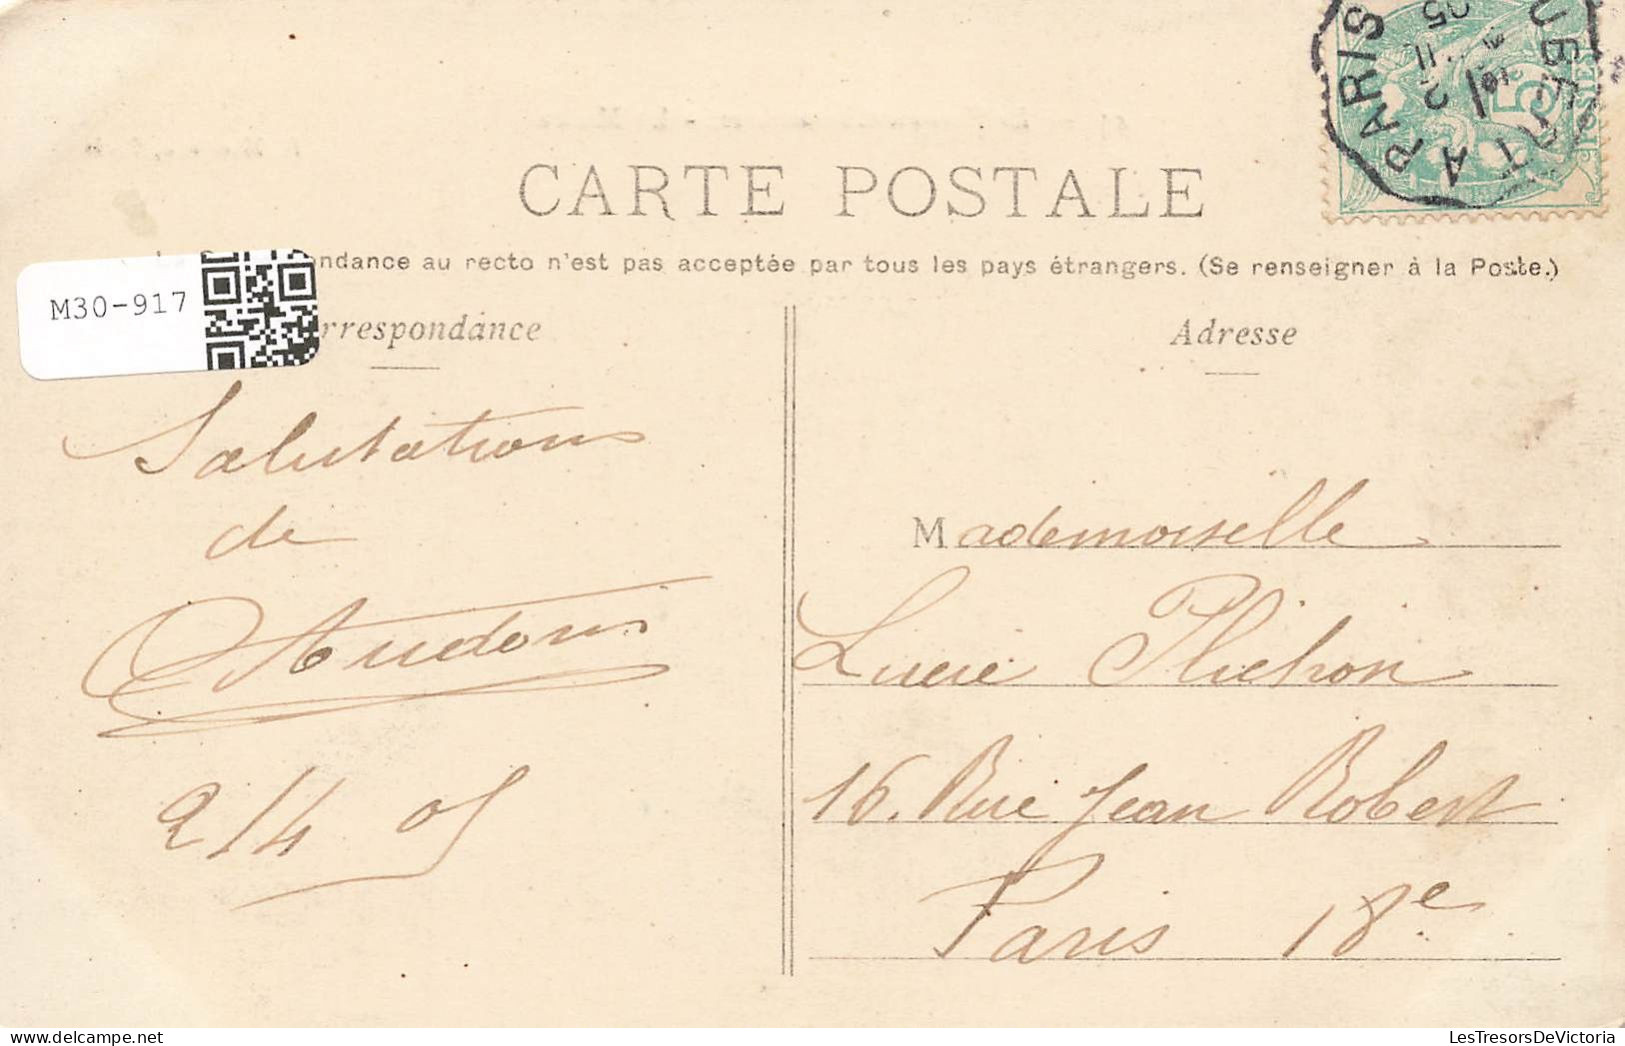 CARTE POSTALE
ndance au recto n'est pas acceptée par tous les pays étrangers. (Se renseigner à la Poste.)
M30-917
rrespondance
Adresse
Salutations
de
2/4 05
Mademoiselle
Lucie Plichon
16. Rue Jean Robert
Paris 18e
PARIS A
2 - 4
05
5
POSTES
LesTresorsDeVictoria